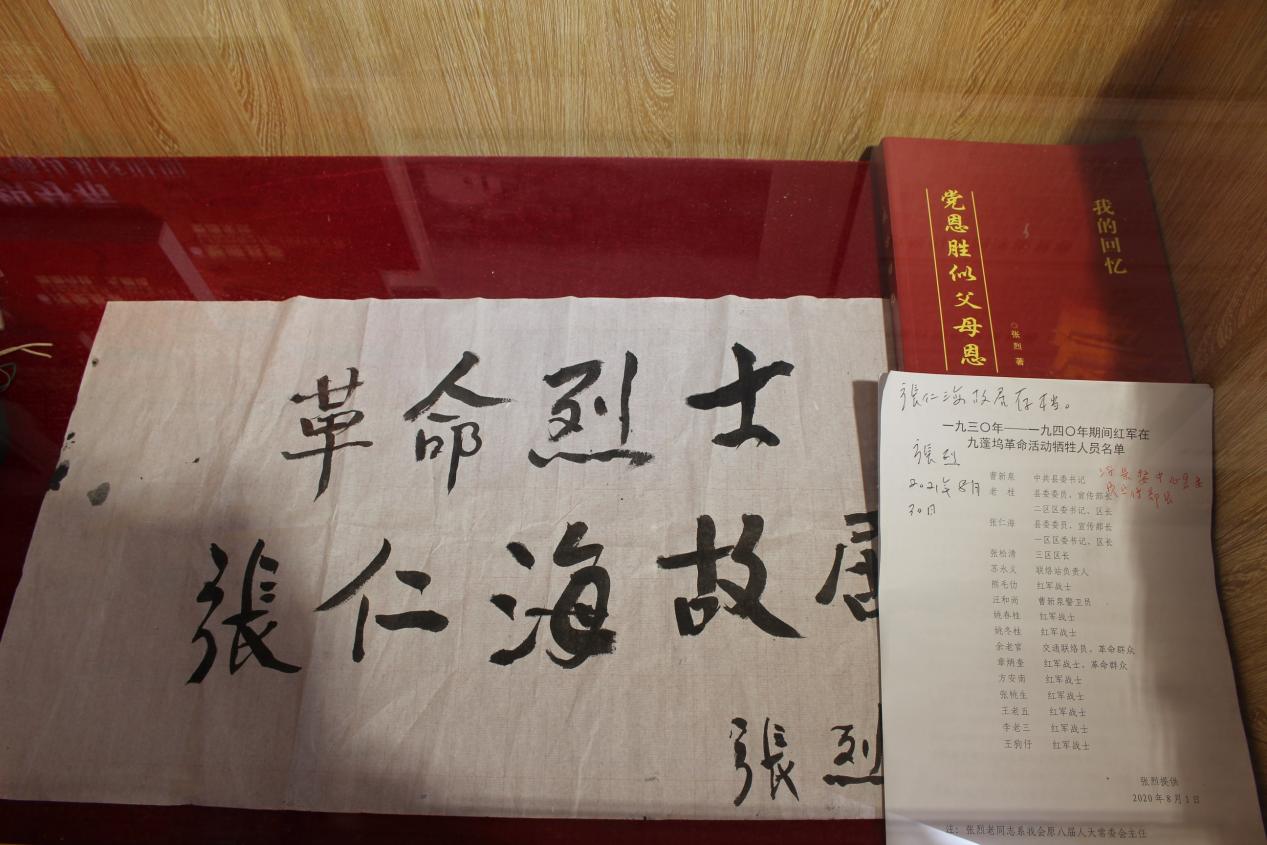 革命烈士
張仁海故居
張烈
我的回忆
党恩胜似父母恩
◎张烈 著
張仁海故居存档。
一九三〇年——一九四〇年期间红军在
九蓬坞革命活动牺牲人员名单
張烈
2021年8月
30日
曹新泉 中共县委书记
老桂 县委委员、宣传部长
二区区委书记、区长
张仁海 县委委员、宣传部长
一区区委书记、区长
张松清 三区区长
苏永义 联络站负责人
熊毛伪 红军战士
汪和尚 曹新泉警卫员
姚春桂 红军战士
姚冬桂 红军战士
余老官 交通联络员、革命群众
章炳奎 红军战士、革命群众
方安南 红军战士
张桃生 红军战士
王老五 红军战士
李老三 红军战士
王狗仔 红军战士
张烈提供
2020年8月1日
注：张烈老同志系我会原八届人大常委会主任